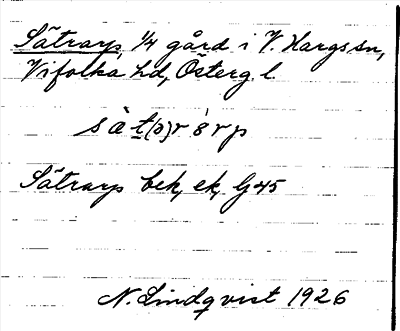 Sätrarp, 1/4 gård i V. Hargs sn,
Vifolka hd, Österg. l.
Sätrarp bek, ek, G 45
N. Lindqvist 1926